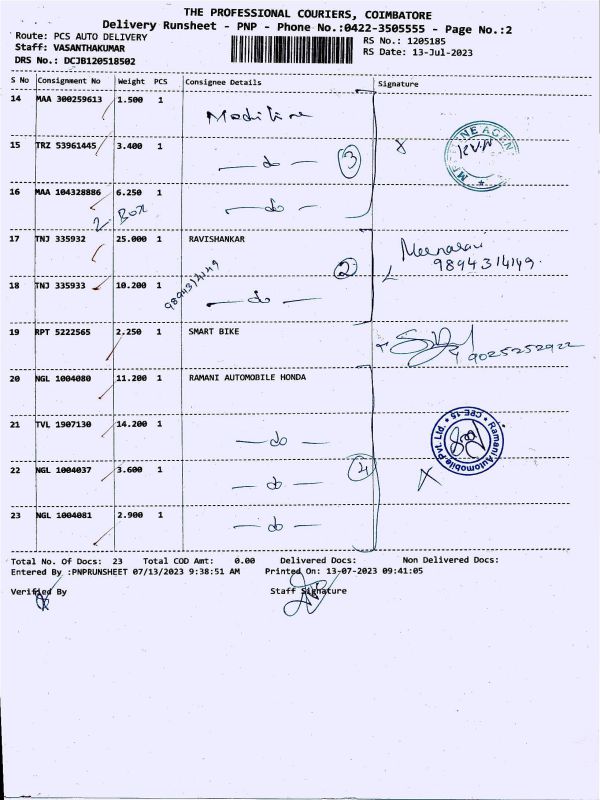 THE PROFESSIONAL COURIERS, COIMBATORE
Delivery Runsheet - PNP - Phone No.:0422-3505555 - Page No.:2
Route: PCS AUTO DELIVERY RS No.: 1205185
Staff: VASANTHAKUMAR RS Date: 13-Jul-2023
DRS No.: DCJB120518502
S No Consignment No Weight PCS Consignee Details Signature
14 MAA 300259613 1.500 1
15 TRZ 53961445 3.400 1 — do — 3
16 MAA 104328886 6.250 1 — do —
2 Box
17 TNJ 335932 25.000 1 RAVISHANKAR 2
9894314149
9894314149
18 TNJ 335933 10.200 1 — do —
19 RPT 5222565 2.250 1 SMART BIKE 9025252922
20 NGL 1004080 11.200 1 RAMANI AUTOMOBILE HONDA
21 TVL 1907130 14.200 1 — do — Ramani Automobile Pvt. Ltd. * CBE-15 *
22 NGL 1004037 3.600 1 — do — 4
23 NGL 1004081 2.900 1 — do —
Total No. Of Docs: 23 Total COD Amt: 0.00 Delivered Docs: Non Delivered Docs:
Entered By :PNPRUNSHEET 07/13/2023 9:38:51 AM Printed On: 13-07-2023 09:41:05
Verified By Staff Signature